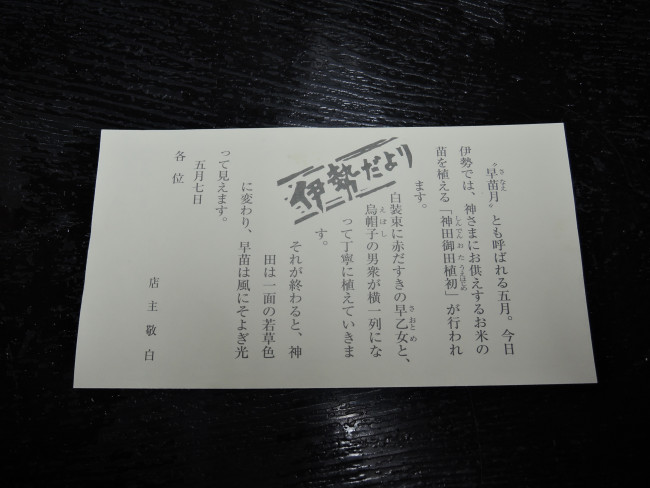 伊勢だより
“早苗月”とも呼ばれる五月。今日
伊勢では、神さまにお供えするお米の
苗を植える「神田御田植初」が行われ
ます。
白装束に赤だすきの早乙女と、
烏帽子の男衆が横一列にな
って丁寧に植えていきま
す。
それが終わると、神
田は一面の若草色
に変わり、早苗は風にそよぎ光
って見えます。
五月七日
各位
店主敬白